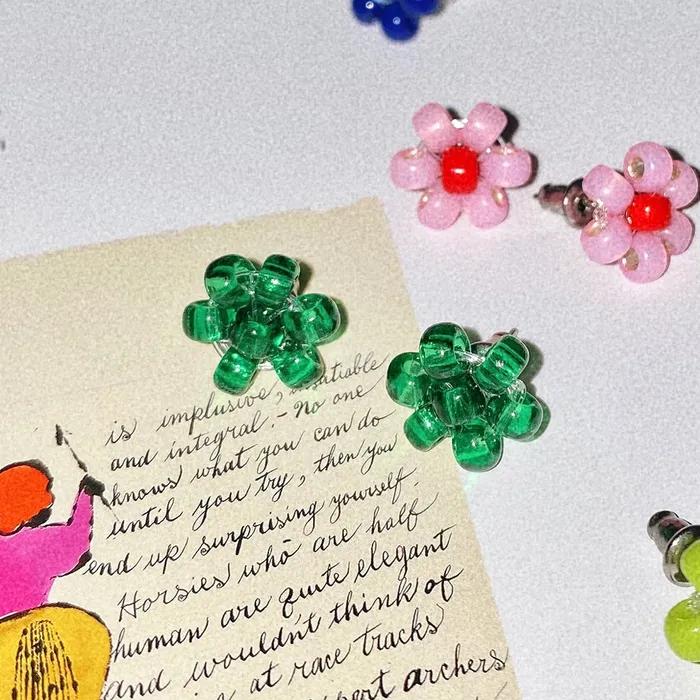 is implusive, insatiable
and integral.- No one
knows what you can do
until you try, then you
end up surprising yourself.
Horsies who are half
human are quite elegant
and wouldn't think of
at race tracks
archers